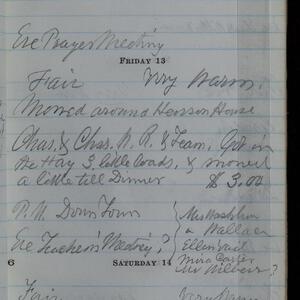 Eve Prayer Meeting
FRIDAY 13
Fair Very Warm.
Mowed around Hanson House
Chas. & Chas. N. R. & Team, Got in
the Hay 3 little loads, & mowed
a little till Dinner $3.00
P.M. Down Town
Eve Teachers Meeting?
Mrs Washburn
& Wallace
Ellen Gail
Mira Carter
Mrs Wilbur?
6 SATURDAY 14
Fair Very Warm